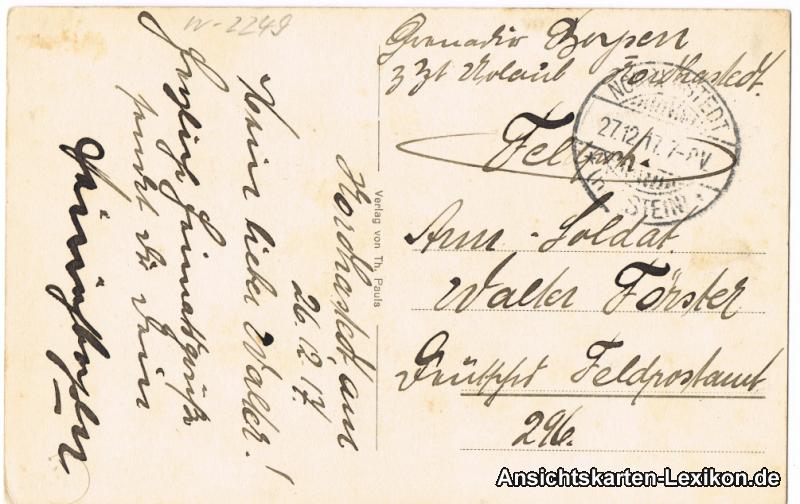 W-2249
Nordhastedt, am
26.12.17.
Mein lieber Walter!
Herzliche Heimatsgrüße
sendet Dir Dein
Verlag von Th. Pauls
Grenadier Boysen
z Zt Urlaub Nordhastedt.
NORDHASTEDT
27.12.17. 7-8V.
(HOLSTEIN)
Feldpost
Arm.-Soldat
Walter Förster
Deutsches Feldpostamt
296.
Ansichtskarten-Lexikon.de